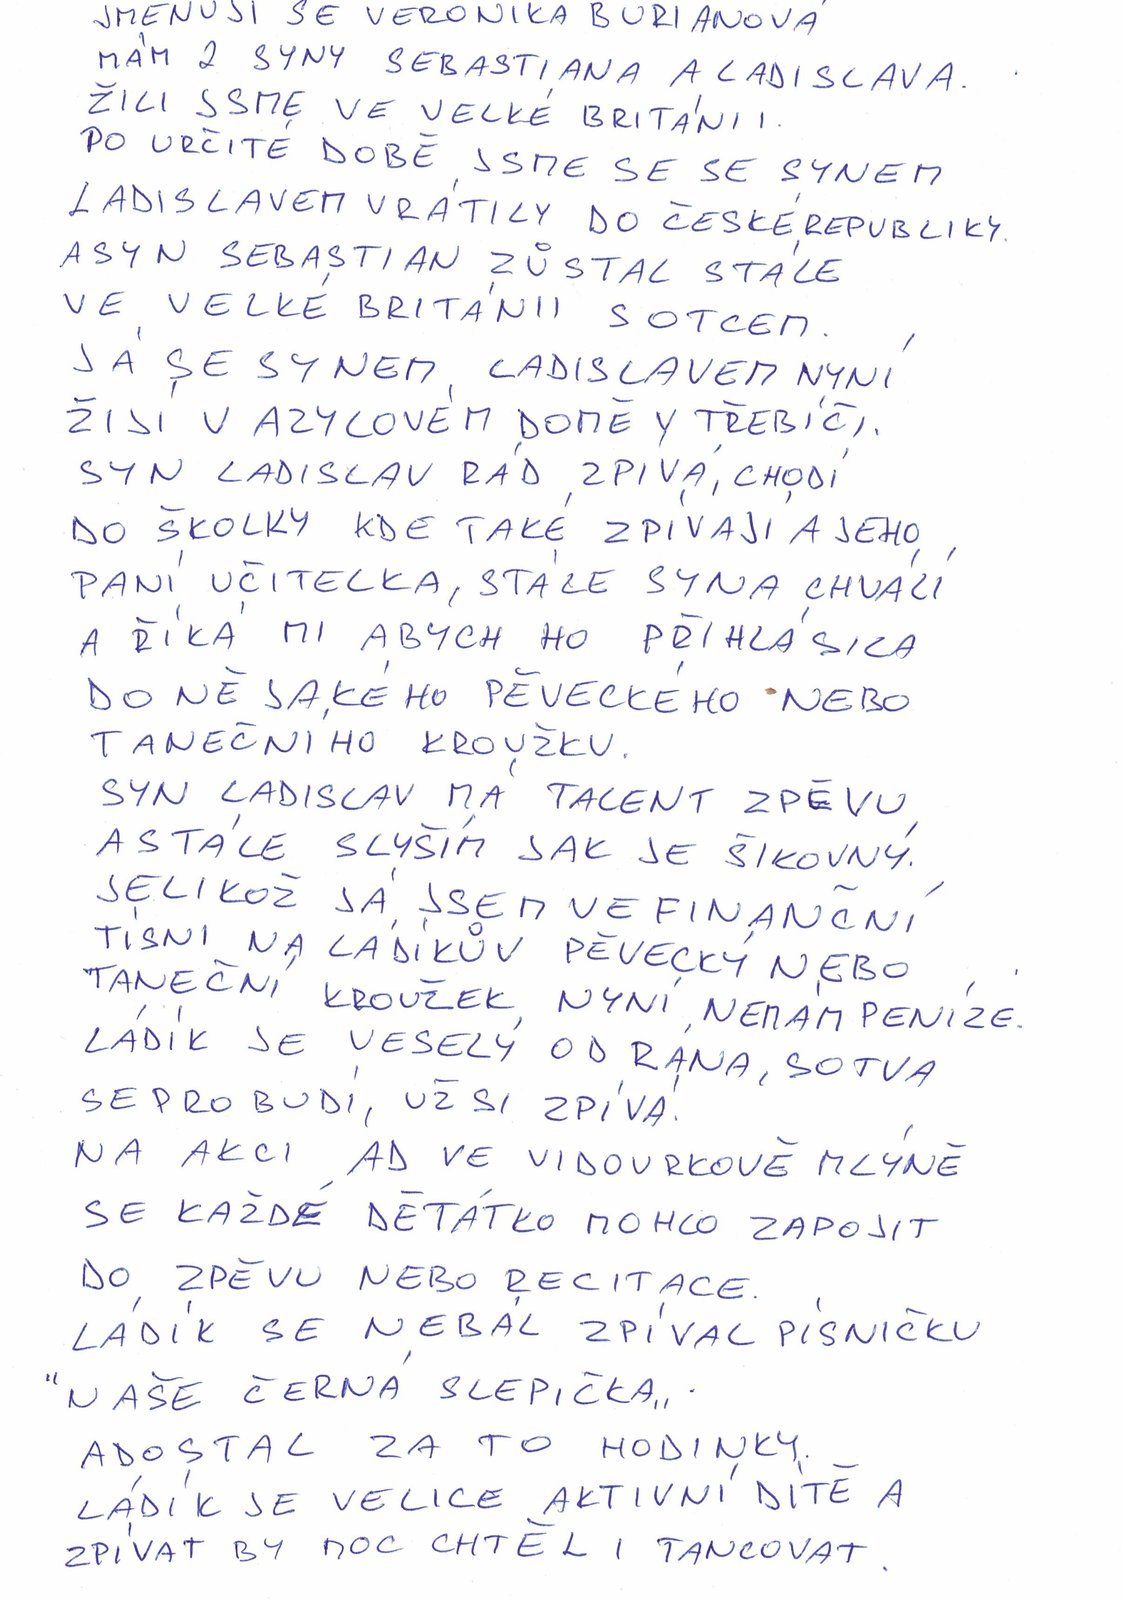 JMENUJI SE VERONIKA BURIANOVÁ
MÁM 2 SYNY SEBASTIANA A LADISLAVA.
ŽILI JSME VE VELKÉ BRITÁNII.
PO URČITÉ DOBĚ JSME SE SE SYNEM
LADISLAVEM VRÁTILY DO ČESKÉ REPUBLIKY.
A SYN SEBASTIAN ZŮSTAL STÁLE
VE VELKÉ BRITÁNII S OTCEM.
JÁ SE SYNEM LADISLAVEM NYNÍ
ŽIJI V AZYLOVÉM DOMĚ V TŘEBÍČI.
SYN LADISLAV RÁD ZPÍVÁ, CHODÍ
DO ŠKOLKY KDE TAKÉ ZPÍVAJÍ A JEHO
PANÍ UČITELKA, STÁLE SYNA CHVÁLÍ
A ŘÍKÁ MI ABYCH HO PŘIHLÁSILA
DO NĚJAKÉHO PĚVECKÉHO NEBO
TANEČNÍHO KROUŽKU.
SYN LADISLAV MÁ TALENT ZPĚVU
A STÁLE SLYŠÍM JAK JE ŠIKOVNÝ.
JELIKOŽ JÁ JSEM VE FINANČNÍ
TÍSNI NA LADÍKŮV PĚVECKÝ NEBO
TANEČNÍ KROUŽEK NYNÍ NEMÁM PENÍZE.
LÁDÍK JE VESELÝ OD RÁNA, SOTVA
SE PROBUDÍ, UŽ SI ZPÍVÁ.
NA AKCI AD VE VIDOURKOVĚ MLÝNĚ
SE KAŽDÉ DĚTÁTKO MOHLO ZAPOJIT
DO ZPĚVU NEBO RECITACE.
LÁDÍK SE NEBÁL ZPÍVAL PÍSNIČKU
"NAŠE ČERNÁ SLEPIČKA,,.
A DOSTAL ZA TO HODINKY.
LÁDÍK JE VELICE AKTIVNÍ DÍTĚ A
ZPÍVAT BY MOC CHTĚL I TANCOVAT.